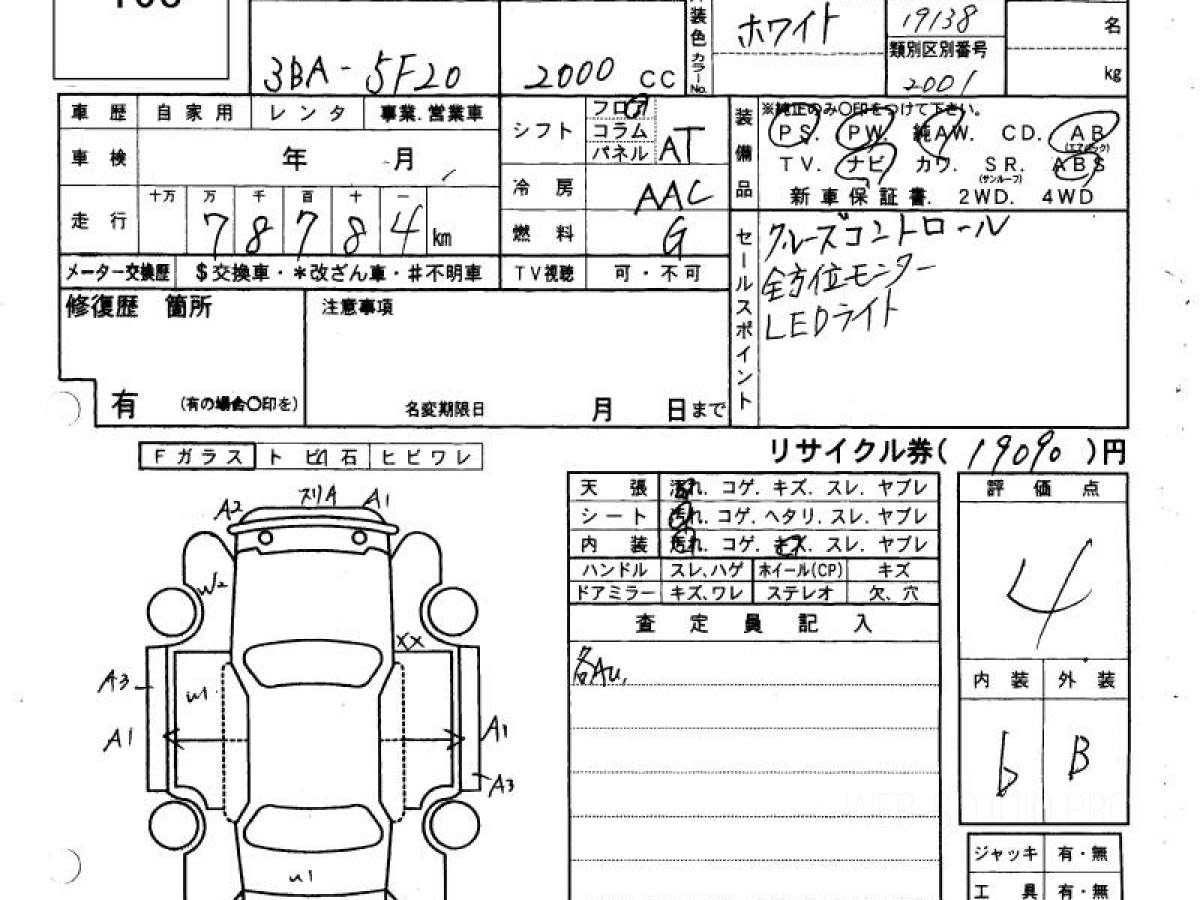 ホワイト
19138
名
類別区別番号
2001
kg
装色
カラーNo.
3BA-5F20
2000 CC
車歴 自家用 レンタ 事業.営業車
車検 年 月
走行 十万 万 千 百 十 一
7 8 7 8 4 km
メーター交換歴 $交換車・*改ざん車・#不明車
シフト フロア コラム パネル AT
冷房 AAC
燃料 G
TV視聴 可・不可
装備品
※純正のみ〇印をつけて下さい。
PS. PW. 純AW. CD. AB
(エアバック)
TV. ナビ カワ. SR. ABS
(サンルーフ)
新車保証書. 2WD. 4WD
セールスポイント
クルーズコントロール
全方位モニター
LEDライト
修復歴 箇所
有 (有の場合〇印を)
注意事項
名変期限日 月 日まで
リサイクル券(19090)円
Fガラス トビ石 ヒビワレ
A2 スリA A1
W2
XX
A3 U1
A1 A1
A3
U1
天張 汚れ. コゲ. キズ. スレ. ヤブレ
シート 汚れ. コゲ. ヘタリ. スレ. ヤブレ
内装 汚れ. コゲ. キズ. スレ. ヤブレ
ハンドル スレ、ハゲ ホイール(CP) キズ
ドアミラー キズ、ワレ ステレオ 欠、穴
査定員記入
各AU,
評価点
4
内装 外装
b B
ジャッキ 有・無
工具 有・無